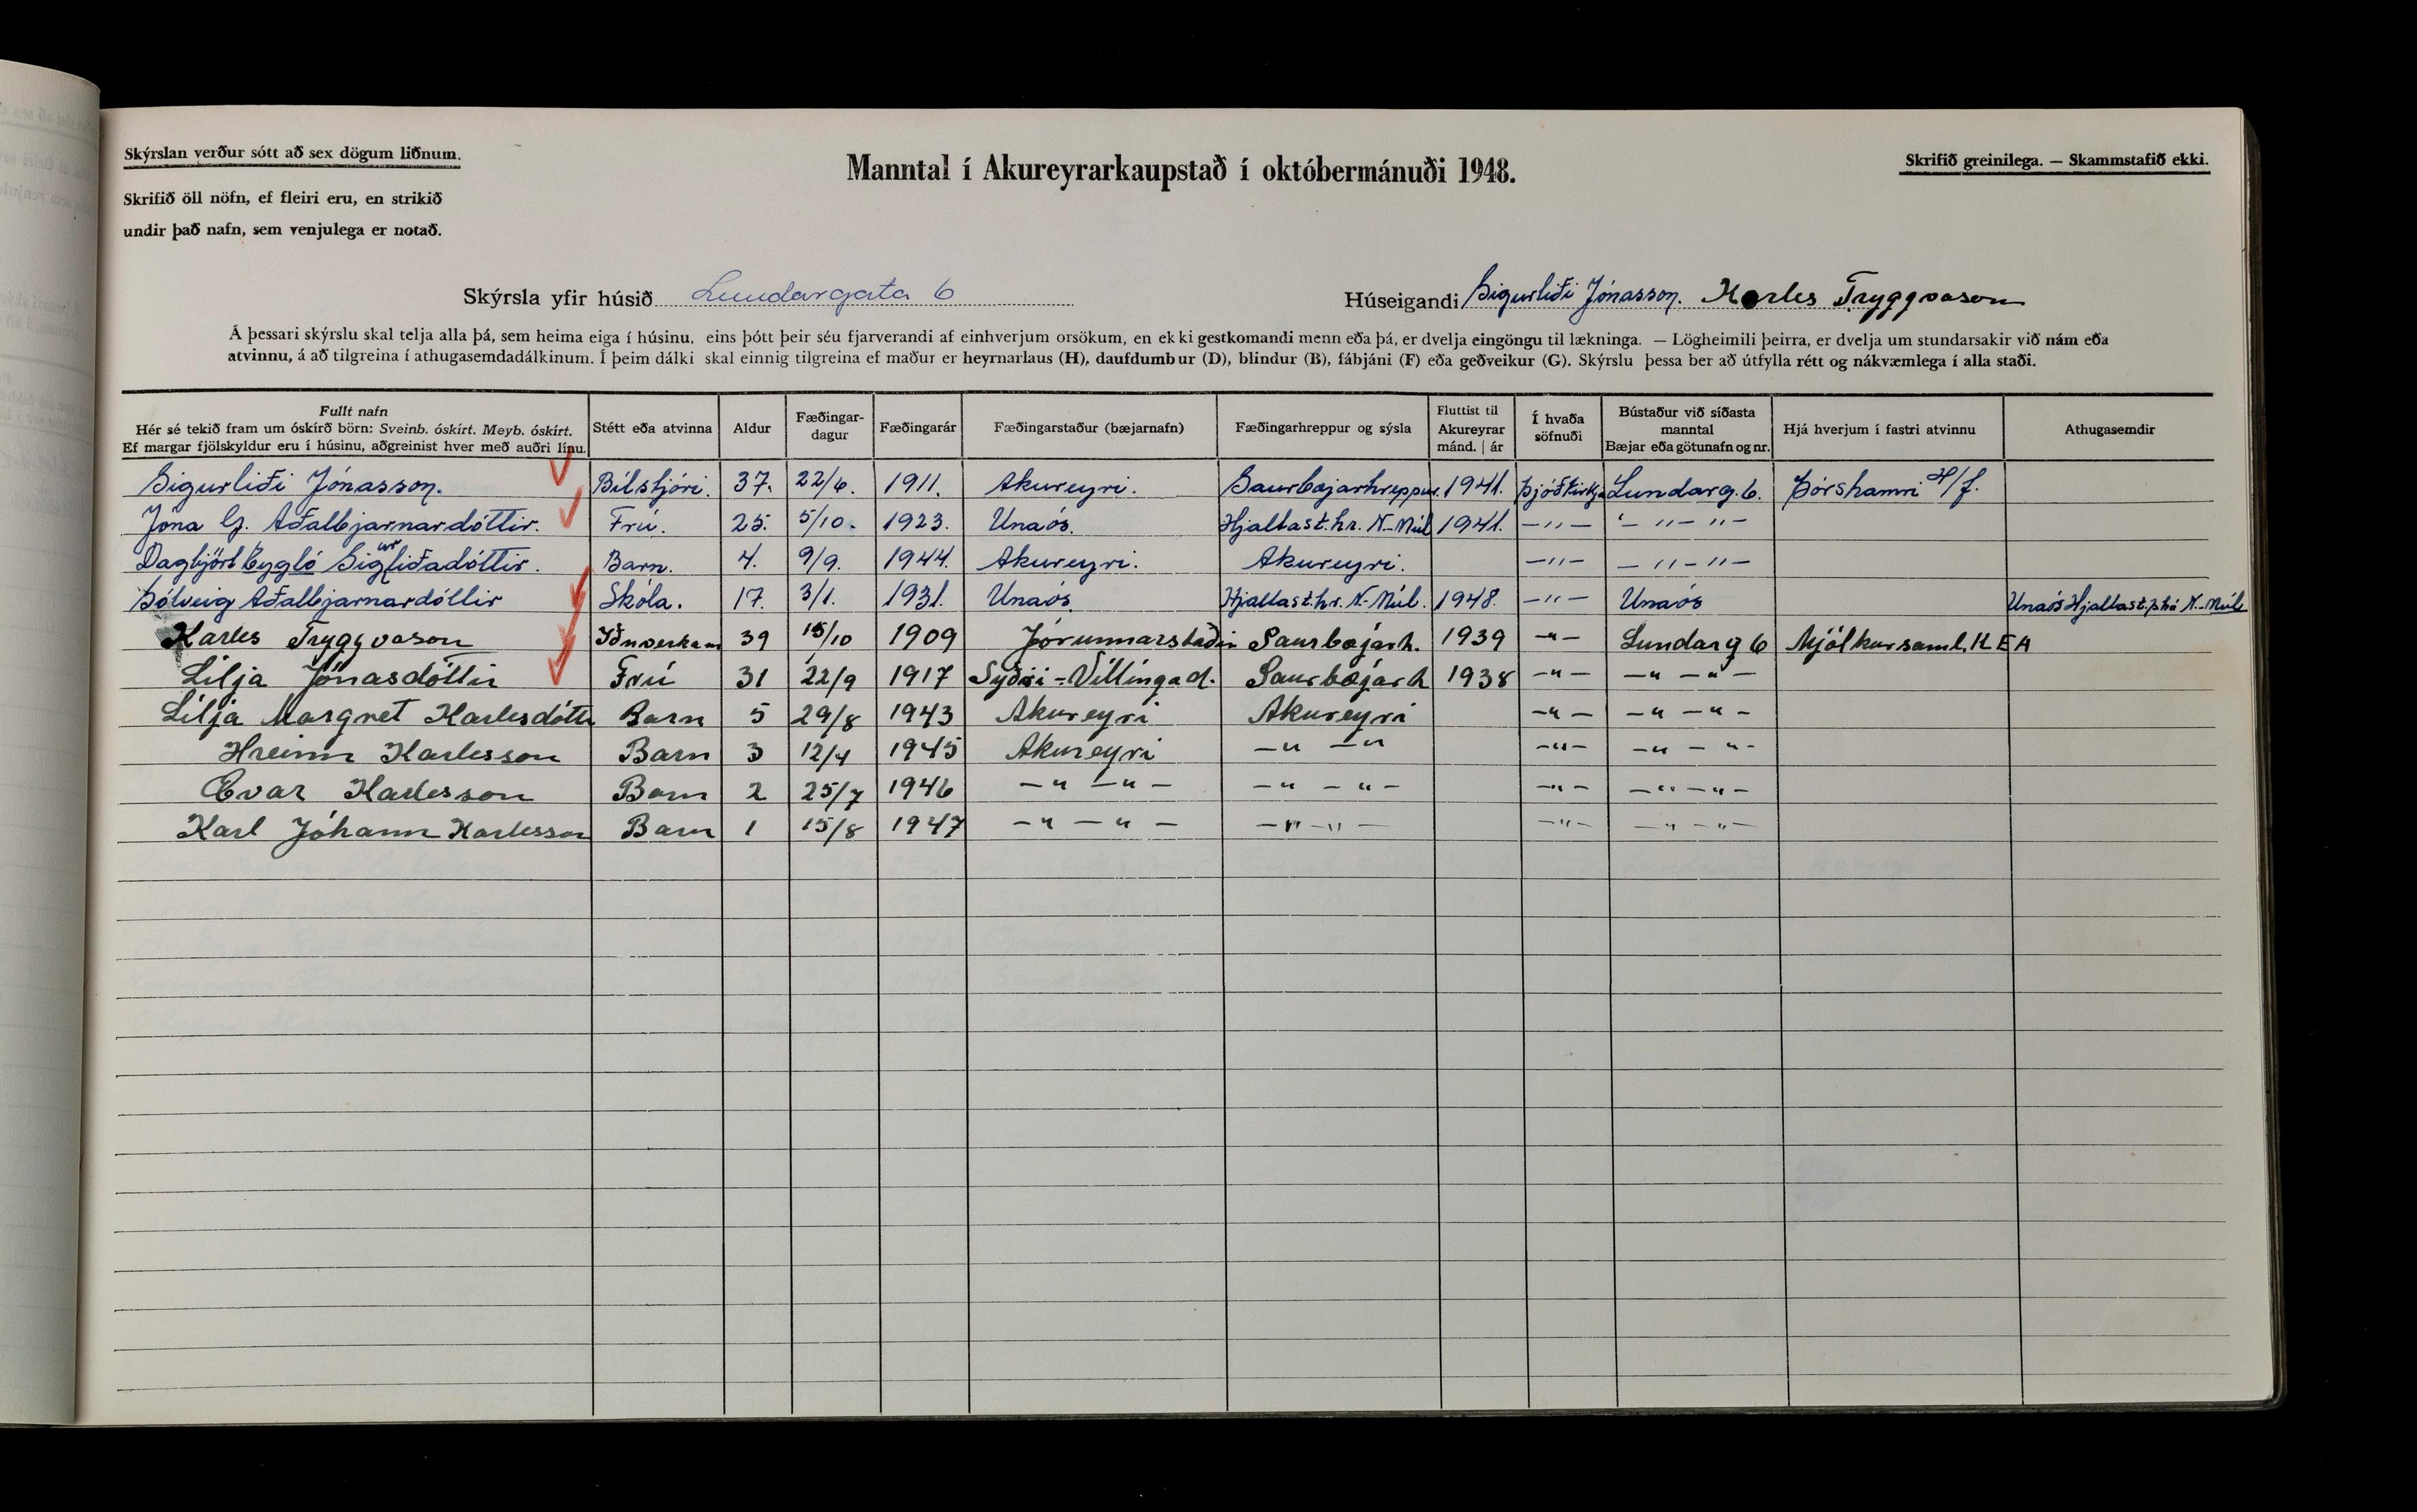 Skýrslan verður sótt að sex dögum liðnum.
Skrifið öll nöfn, ef fleiri eru, en strikið
undir það nafn, sem venjulega er notað.
Manntal í Akureyrarkaupstað í októbermánuði 1948.
Skrifið greinilega. — Skammstafið ekki.
Skýrsla yfir húsið Lundargata 6
Húseigandi Sigurliði Jónasson. Karles Tryggvason
Á þessari skýrslu skal telja alla þá, sem heima eiga í húsinu, eins þótt þeir séu fjarverandi af einhverjum orsökum, en ekki gestkomandi menn eða þá, er dvelja eingöngu til lækninga. — Lögheimili þeirra, er dvelja um stundarsakir við nám eða
atvinnu, á að tilgreina í athugasemdadálkinum. Í þeim dálki skal einnig tilgreina ef maður er heyrnarlaus (H), daufdumbur (D), blindur (B), fábjáni (F) eða geðveikur (G). Skýrslu þessa ber að útfylla rétt og nákvæmlega í alla staði.
Fullt nafn Hér sé tekið fram um óskírð börn: Sveinb. óskírt. Meyb. óskírt. Ef margar fjölskyldur eru í húsinu, aðgreinist hver með auðri línu. Stétt eða atvinna Aldur Fæðingar-dagur Fæðingarár Fæðingarstaður (bæjarnafn) Fæðingarhreppur og sýsla Fluttist til Akureyrar mánd. | ár Í hvaða söfnuði Bústaður við síðasta manntal Bæjar eða götunafn og nr. Hjá hverjum í fastri atvinnu Athugasemdir
Sigurliði Jónasson. Bílstjóri. 37. 22/6. 1911. Akureyri. Saurbæjarhreppur. 1941. Þjóðkirkja Lundarg. 6. Þórshamri H/f.
Jóna G. Aðalbjarnardóttir. Frú. 25. 5/10. 1923. Unaós. Hjaltast.hr. N-Múl 1941. —〃— — 〃 — 〃 —
Dagbjört Eygló Sigurliðadóttir. Barn. 4. 9/9. 1944. Akureyri. Akureyri. —〃— — 〃 — 〃 —
Sólveig Aðalbjarnardóttir Skóla. 17. 3/1. 1931. Unaós Hjaltast.hr. N-Múl. 1948. —〃— Unaós Unaós Hjaltast.þhá N-Múl
Karles Tryggvason Iðnverkam 39 15/10 1909 Jórunnarstaðir Saurbæjarh. 1939 —〃— Lundarg 6 Mjólkursaml. KEA
Lilja Jónasdóttir Frú 31 22/9 1917 Syðri-Villingad. Saurbæjarh 1938 —〃— —〃 —〃—
Lilja Margret Karlesdóttir Barn 5 29/8 1943 Akureyri Akureyri —〃— —〃 —〃—
Hreinn Karlesson Barn 3 12/4 1945 Akureyri —〃 —〃 —〃— —〃 — 〃—
Evar Karlesson Barn 2 25/7 1946 —〃 —〃— —〃 — 〃— —〃— —〃—〃—
Karl Jóhann Karlesson Barn 1 15/8 1947 —〃 —〃— —〃—〃— —〃— —〃 —〃—